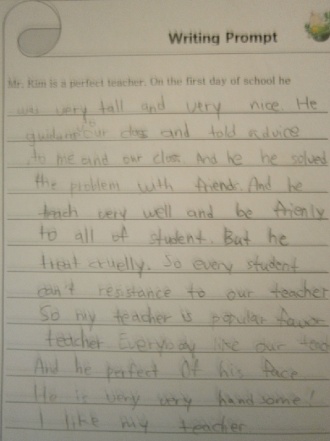 Writing Prompt
Mr. Kim is a perfect teacher. On the first day of school he
was very tall and very nice. He
to our class and told advice
to me and our class. And he he solved
the problem with friends. And he
teach very well and be frienly
to all of student. But he
treat cruelly. So every student
can't resistance to our teacher
So my teacher is popular
teacher Everybody like our
And he perfect of his face
He is very very handsome!
I like my teacher